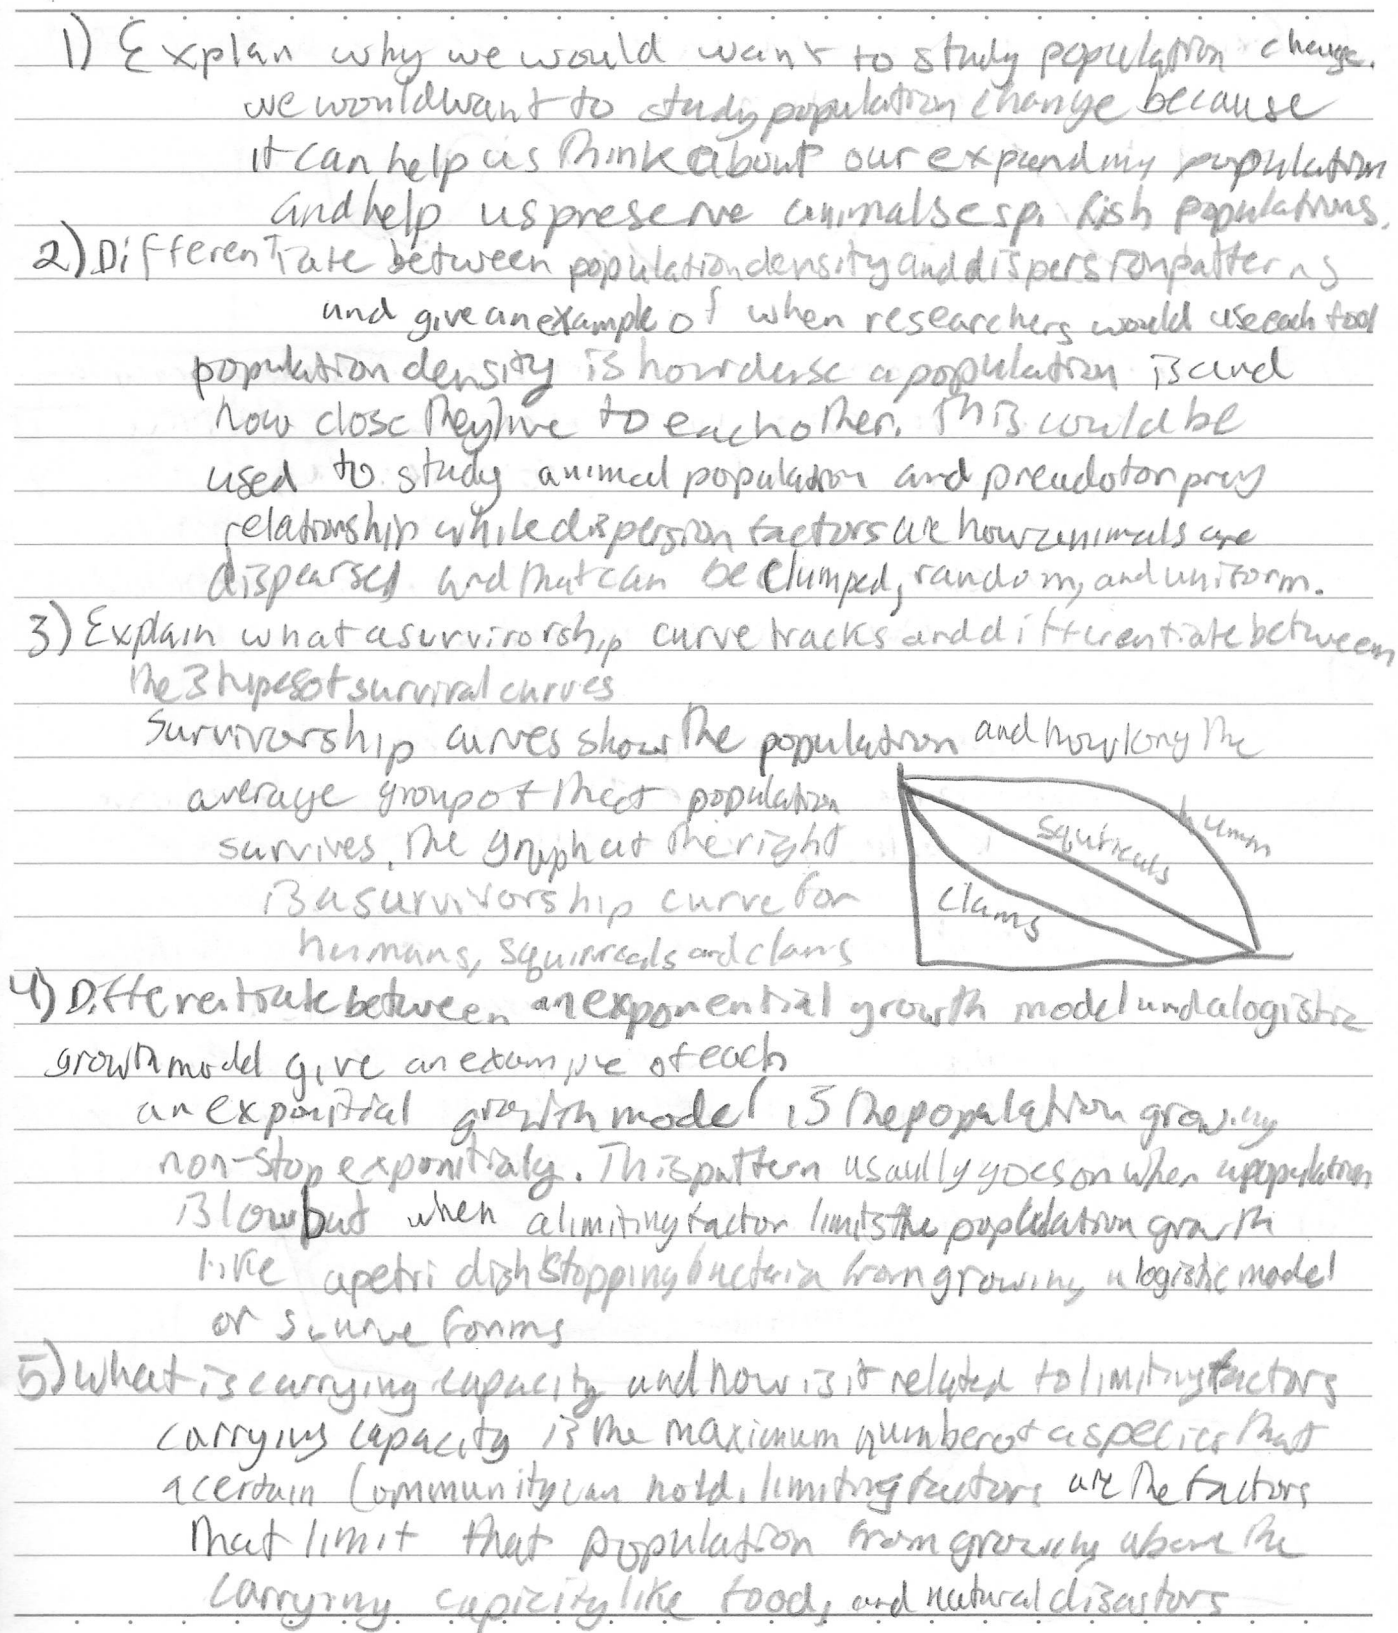 1) Explan why we would want to study population change.
we would want to study population change because
it can help us think about our expanding population
and help us preserve animals esp. fish populations.
2) Differentiate between population density and dispersion patterns
and give an example of when researchers would use each tool
population density is how dense a population is and
how close they live to each other. This could be
used to study animal population and preudotor prey
relationship while dispersion factors are how animals are
dispearsed and that can be clumped, random, and uniform.
3) Explain what a survivorship curve tracks and differentiate between
the 3 types of survival curves
Survivorship curves show the population and how long the
average group of that population
survives, the graph at the right
is a survivorship curve for
humans, squirreals and clams
human
squireals
clams
4) Differentiate between an exponential growth model and a logistic
growth model give an example of each
an exponitial growth model is the population growing
non-stop exponitialy. This pattern usaully goes on when a population
is low but when a limiting factor limits the population growth
like a petri dish stopping bacteria from growing a logistic model
or s curve forms
5) what is carrying capacity and how is it related to limiting factors
carrying capacity is the maximum number of a species that
a certain community can hold. limiting factors are the factors
that limit that population from growing above the
carrying capicity like food, and natural disastors